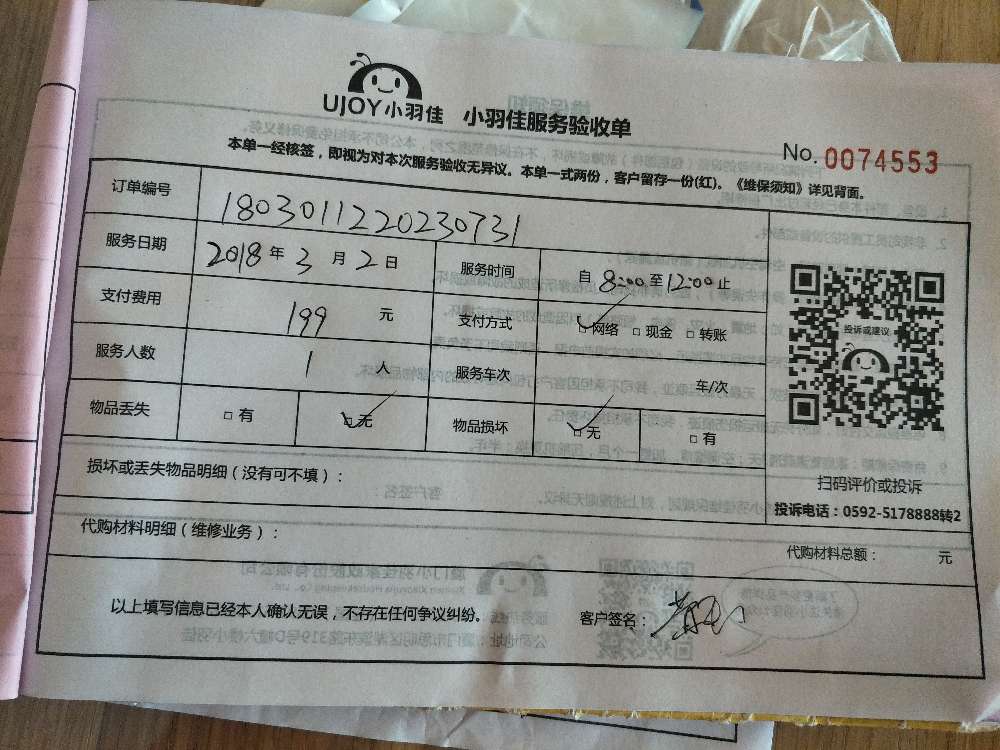 UJOY小羽佳 小羽佳服务验收单
No. 0074553
本单一经核签，即视为对本次服务验收无异议。本单一式两份，客户留存一份(红)。《维保须知》详见背面。
订单编号 1803011220230731
服务日期 2018年3月2日 服务时间 自8:00至12:00止
支付费用 199 元 支付方式 网络 现金 转账
服务人数 1 人 服务车次 车/次
物品丢失 有 无 物品损坏 无 有
投诉或建议
扫码评价或投诉
投诉电话：0592-5178888转2
损坏或丢失物品明细（没有可不填）：
代购材料明细（维修业务）：
代购材料总额： 元
以上填写信息已经本人确认无误，不存在任何争议纠纷。 客户签名：